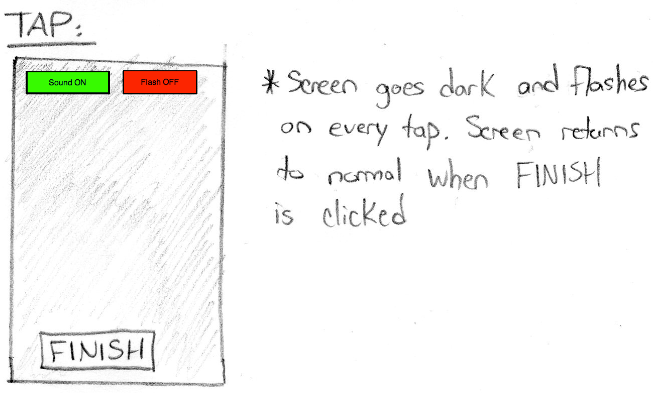 TAP:
Sound ON
Flash OFF
* Screen goes dark and flashes
on every tap. Screen returns
to normal when FINISH
is clicked
FINISH